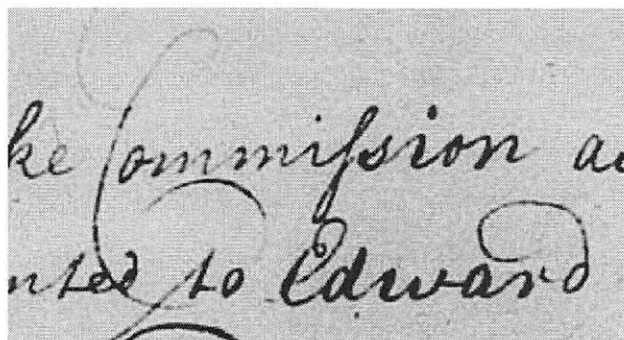 ke Commiſsion ac
nted to Edward